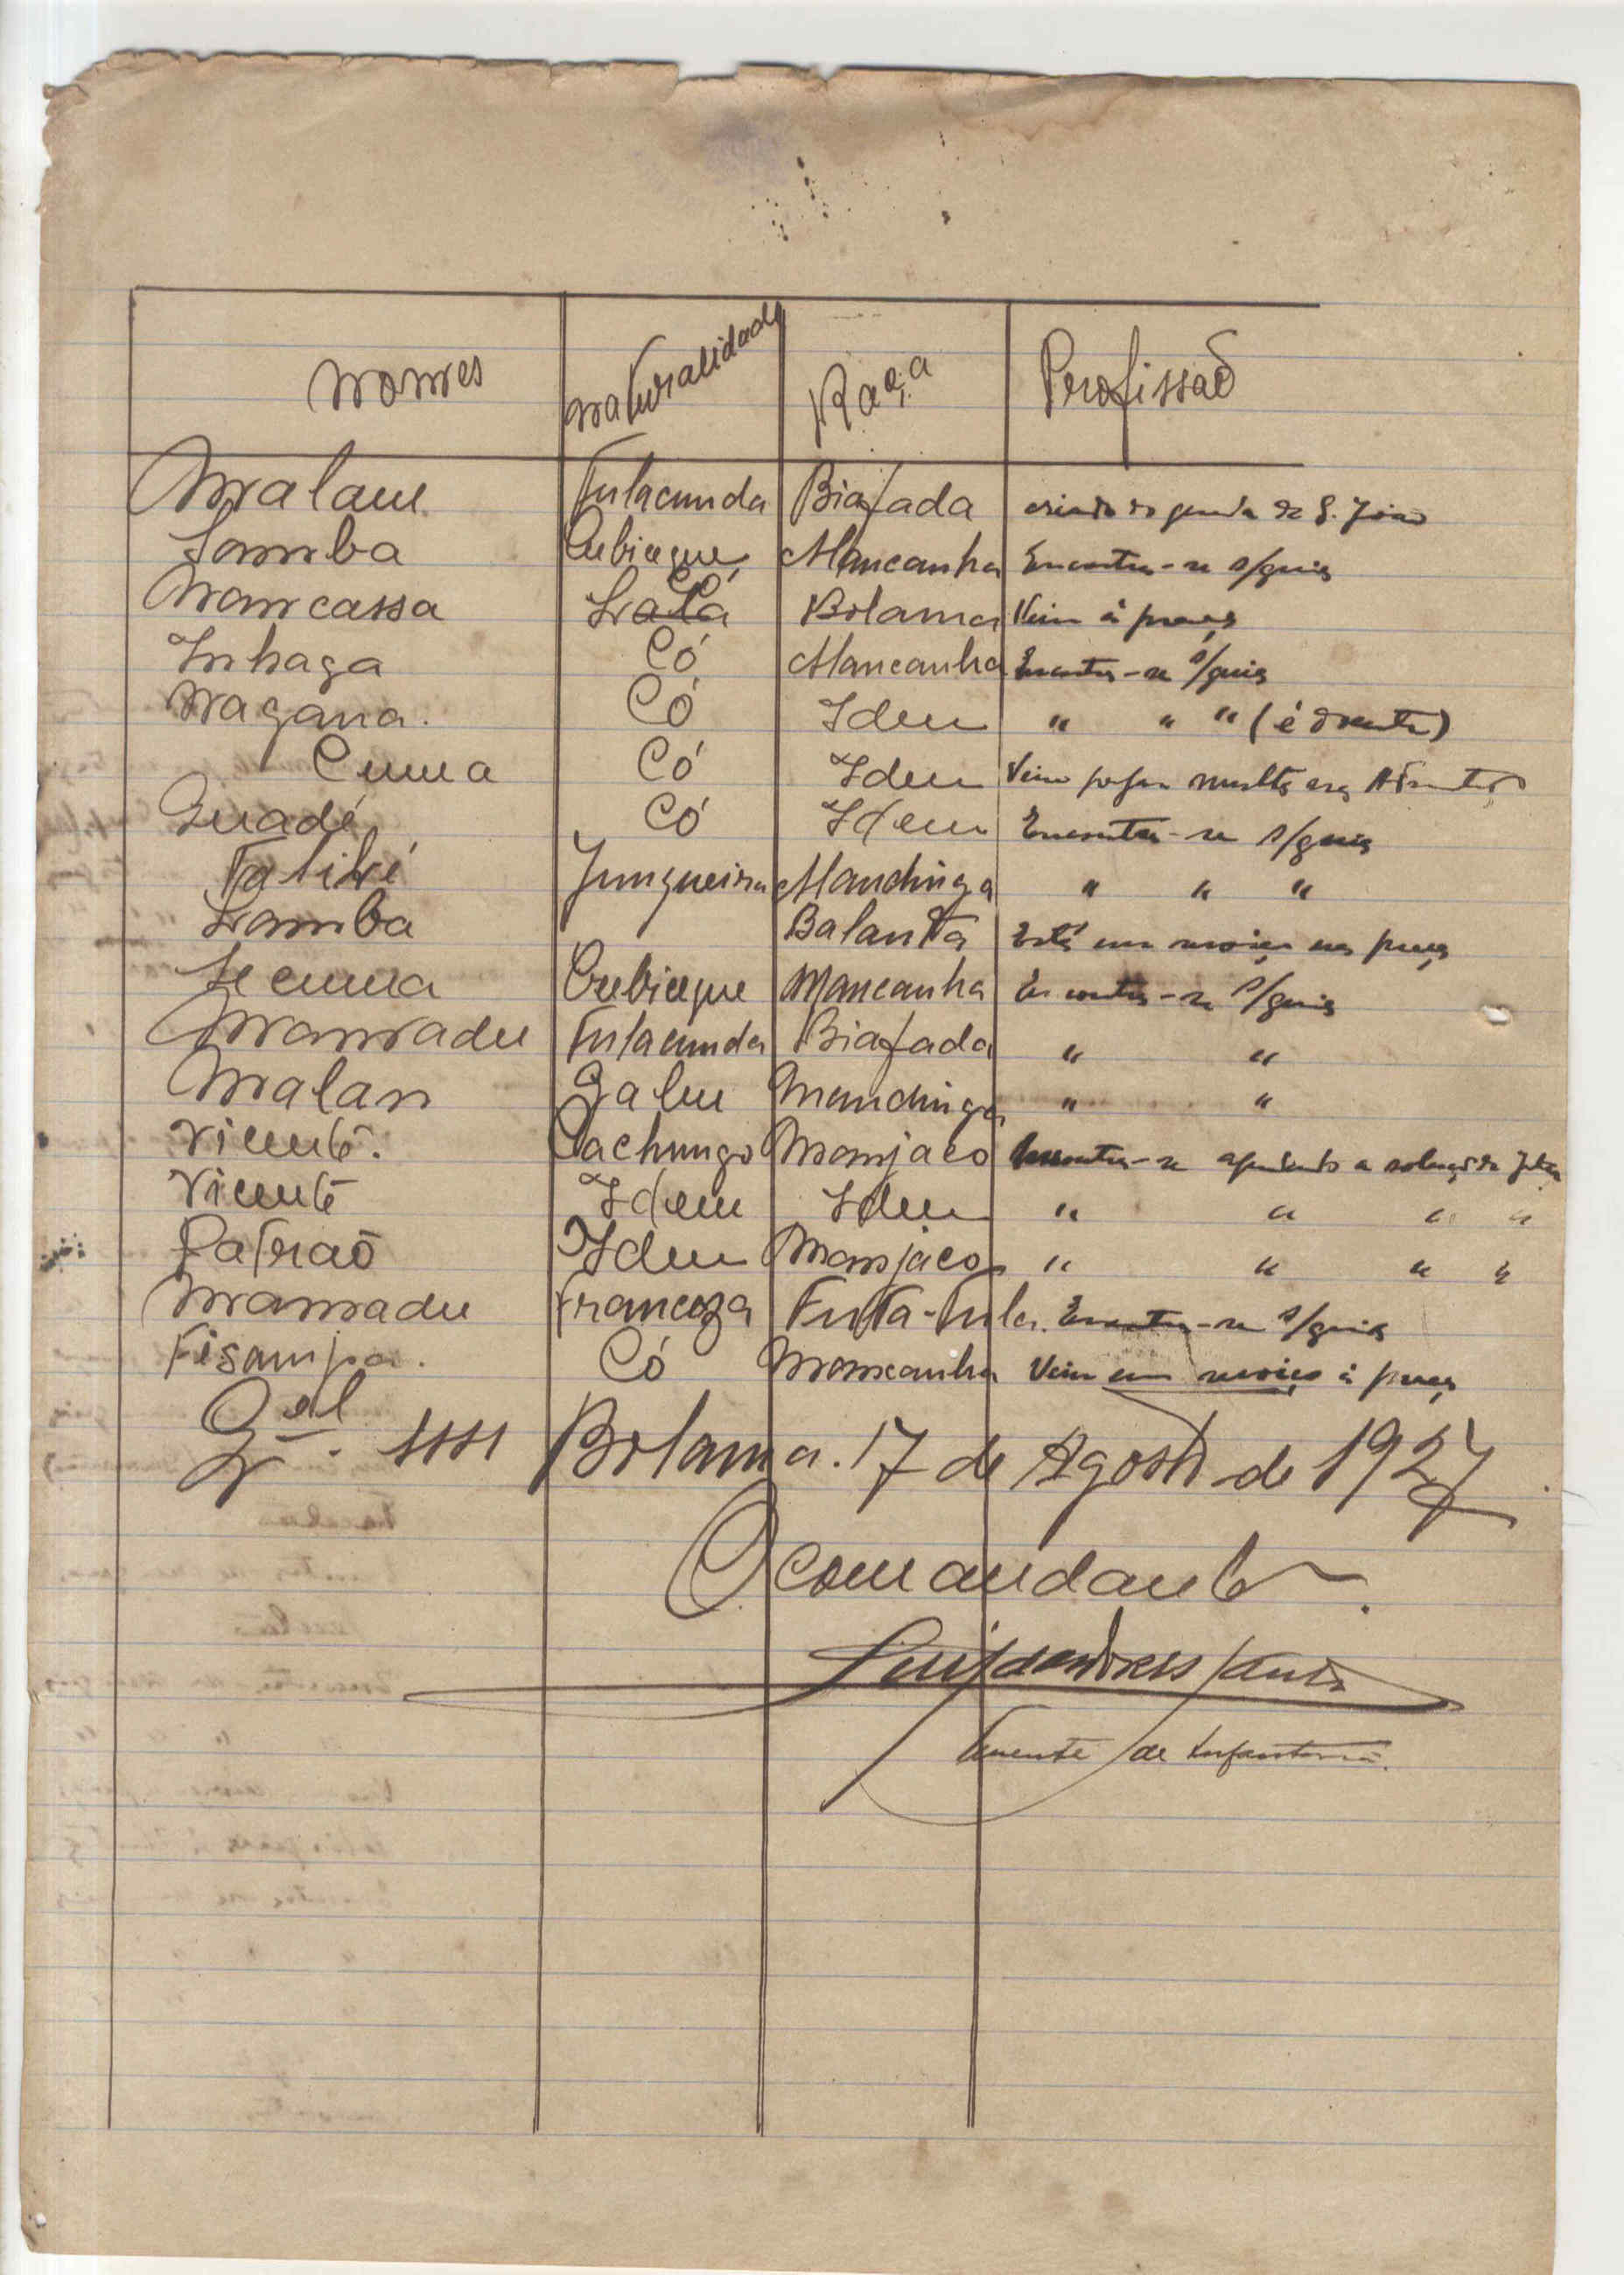 Nomes Naturalidade Raça Profissão
Malam Fulacunda Biafada criado do de S. João
Samba Mancanha Encontra-se s/guia
Nancassa Có Bolama Veio á praça
Inhaga Có Mancanha Encontra-se s/guia
Nagana. Có Idem " " " (é doente)
Cuma Có Idem Veio pagar multa
Quadé Có Idem Encontra-se s/guia
Jungueira Mandinga " " "
Samba Balanta Está em serviço na praça
Secuna Mancanha Encontra-se s/guia
Mamadu Fulacunda Biafada " "
Malan Gabu Mandinga " "
Vicente. Cachungo Manjaco Encontra-se a
Vicente Idem Idem " " " "
Patraõ Idem Manjaco " " " "
Mamadu Franceza Futa-Fula. Encontra-se s/guia
Có Mancanha Veio em serviço á praça
Bolama. 17 de Agosto de 1927
O comandante.
Tenente de Infantaria.